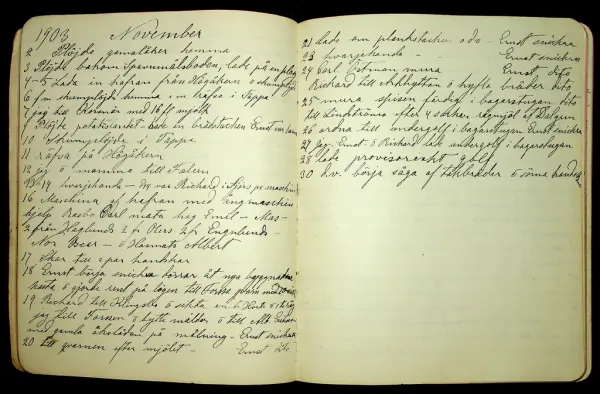 1903 November
2 Plöjde gamalåker hemma
3 Plöjde bakom Spannmålsboden, lade på en plog
4-5 Lada in hafran från Högåkern o skumplöjde
6 fm skumplöjde hemma em harfva i Täppa
7 jag till Korsnäs med 16 ft mjölk
9 Plöjde potatislandet lade en brädstachen Ernst var
10 Skumplöjde i Täppa
11 räfsa på Högåkern
12 jag o mamma till Falun
13-14 hvarjehanda - Richard i Sjös pr maskin
16 Maskina af hafran med Eng maskin
hjelp Carl mata hag Emil - Mas-
2 från Heglunds 2 fr Olers 2 fr Englunds -
Nor - o Hannats Albert
17 Skar till 2 par handskar
18 Ernst börja snickra dörrar åt nya byggnaden
hasta o gjorde rent på logen till
19 Richard till Klingsbo o
jag till Forsen o bytte målder o till Alb.
med gamla åkslädan på målning - Ernst snickra
20 till qvarnen efter mjölet - Ernst Dto
21 lade om plankstacken o dv - Ernst snickra
23 hvarjehanda - Ernst snickra
24 Carl Östman mura Ernst dito
Richard till Arkhyttan o hyfla bräder dito
25 mura spisen färdig i bagarstugan dito
till Lindströms efter 4 säckar rågmjöl af Dalgren
26 ordna till undergolf i bagarstugan Ernst snickra
27 Jag Ernst o Richard lade undergolf i bagarstugan
28 lade provisoriskt golf
30 d.v. börja såga af takbräder o sörna